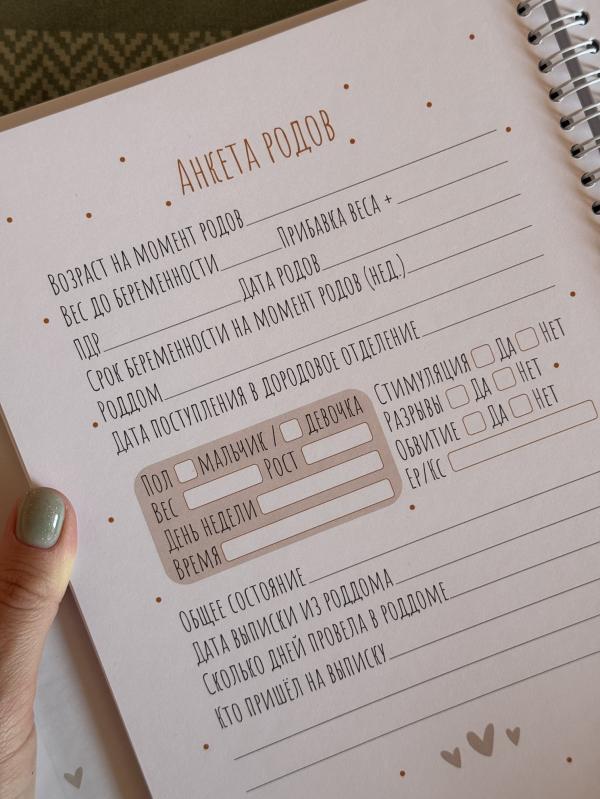 Анкета родов
Возраст на момент родов
Вес до беременности Прибавка веса +
ПДР Дата родов
Срок беременности на момент родов (нед.)
Роддом
Дата поступления в дородовое отделение
Пол мальчик / девочка
Вес Рост
День недели
Время
Стимуляция Да Нет
Разрывы Да Нет
Обвитие Да Нет
ЕР/КС
Общее состояние
Дата выписки из роддома
Сколько дней провела в роддоме
Кто пришёл на выписку